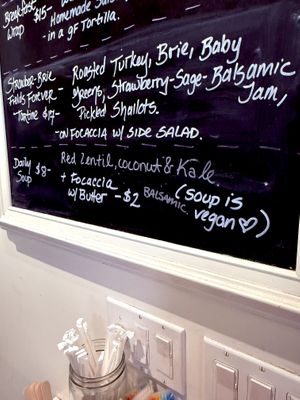 Breakfast
Wrap $15- Homemade Salsa
in a GF Tortilla.
Strawbz-Brie - Roasted Turkey, Brie, Baby
Fields Forever greens, Strawberry-Sage-Balsamic
Tartine $17- Jam,
Pickled Shallots.
-ON FOCACCIA W/ SIDE SALAD.
Daily $8- Red Lentil, coconut & Kale
Soup + Focaccia (soup is
w/ Butter -$2 BALSAMIC. vegan♡)